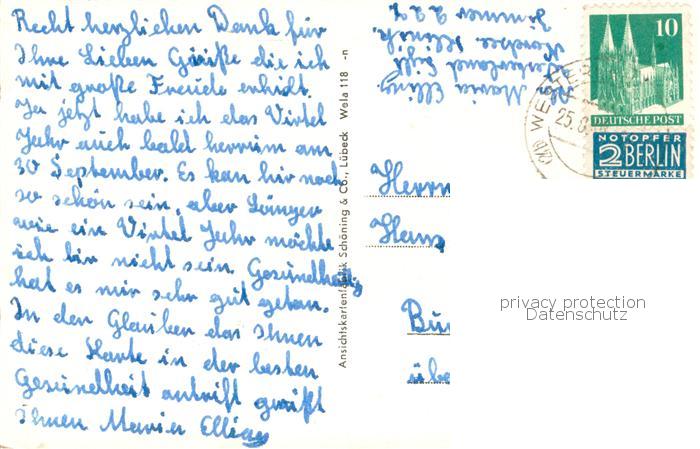 Recht herzlichen Dank für
Ihre Lieben Grüße die ich
mit große Freude erhilt.
Ja jetzt habe ich das Virtel
Jahr auch bald herrum am
30 September. Es kan hir noch
so schön sein, aber Länger
wie ein Virtel Jahr möchte
ich hir nicht sein. Gesundheitlig
hat es mir sehr gut getan.
In den Glauben das Ihnen
diese Karte in der besten
Gesundheit antrift grüßt
Ihnen Maria Elling
Ansichtskartenfabrik Schöning & Co., Lübeck Wela 118 -n
Maria Elling
Westerland Sylt
Zimmer 222
10
DEUTSCHE POST
NOTOPFER
2 BERLIN
STEUERMARKE
WESTER
25.8.
Herrn
Hans
Bu
übe
privacy protection
Datenschutz